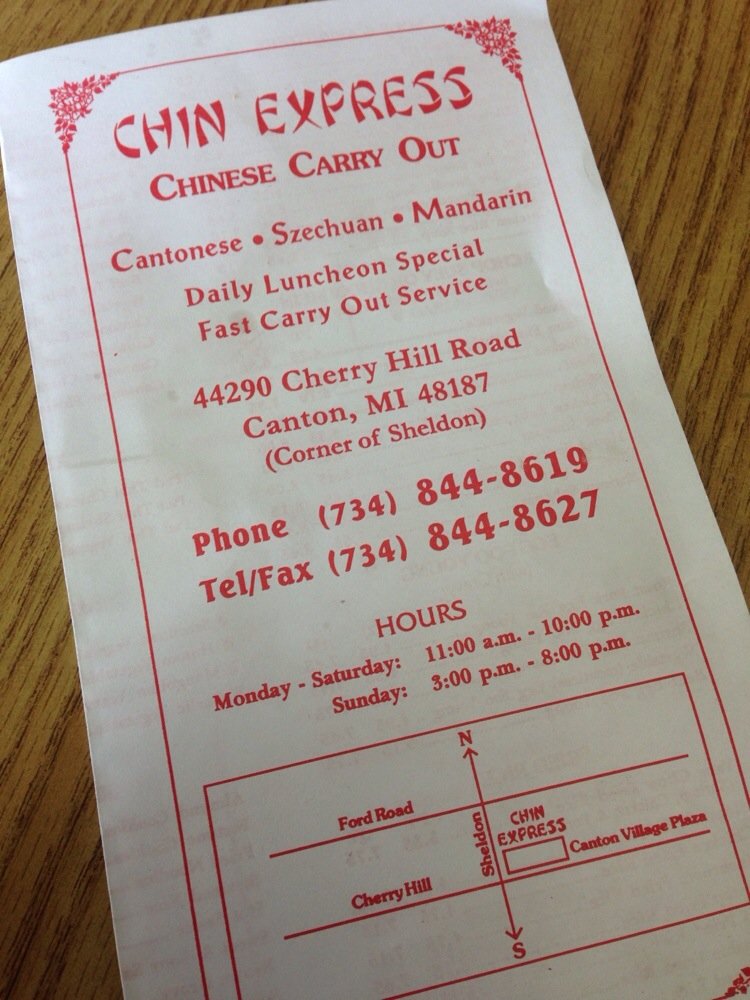 CHIN EXPRESS
CHINESE CARRY OUT
Cantonese • Szechuan • Mandarin
Daily Luncheon Special
Fast Carry Out Service
44290 Cherry Hill Road
Canton, MI 48187
(Corner of Sheldon)
Phone (734) 844-8619
Tel/Fax (734) 844-8627
HOURS
Monday - Saturday: 11:00 a.m. - 10:00 p.m.
Sunday: 3:00 p.m. - 8:00 p.m.
N
Ford Road
Sheldon
CHIN
EXPRESS
Canton Village Plaza
Cherry Hill
S